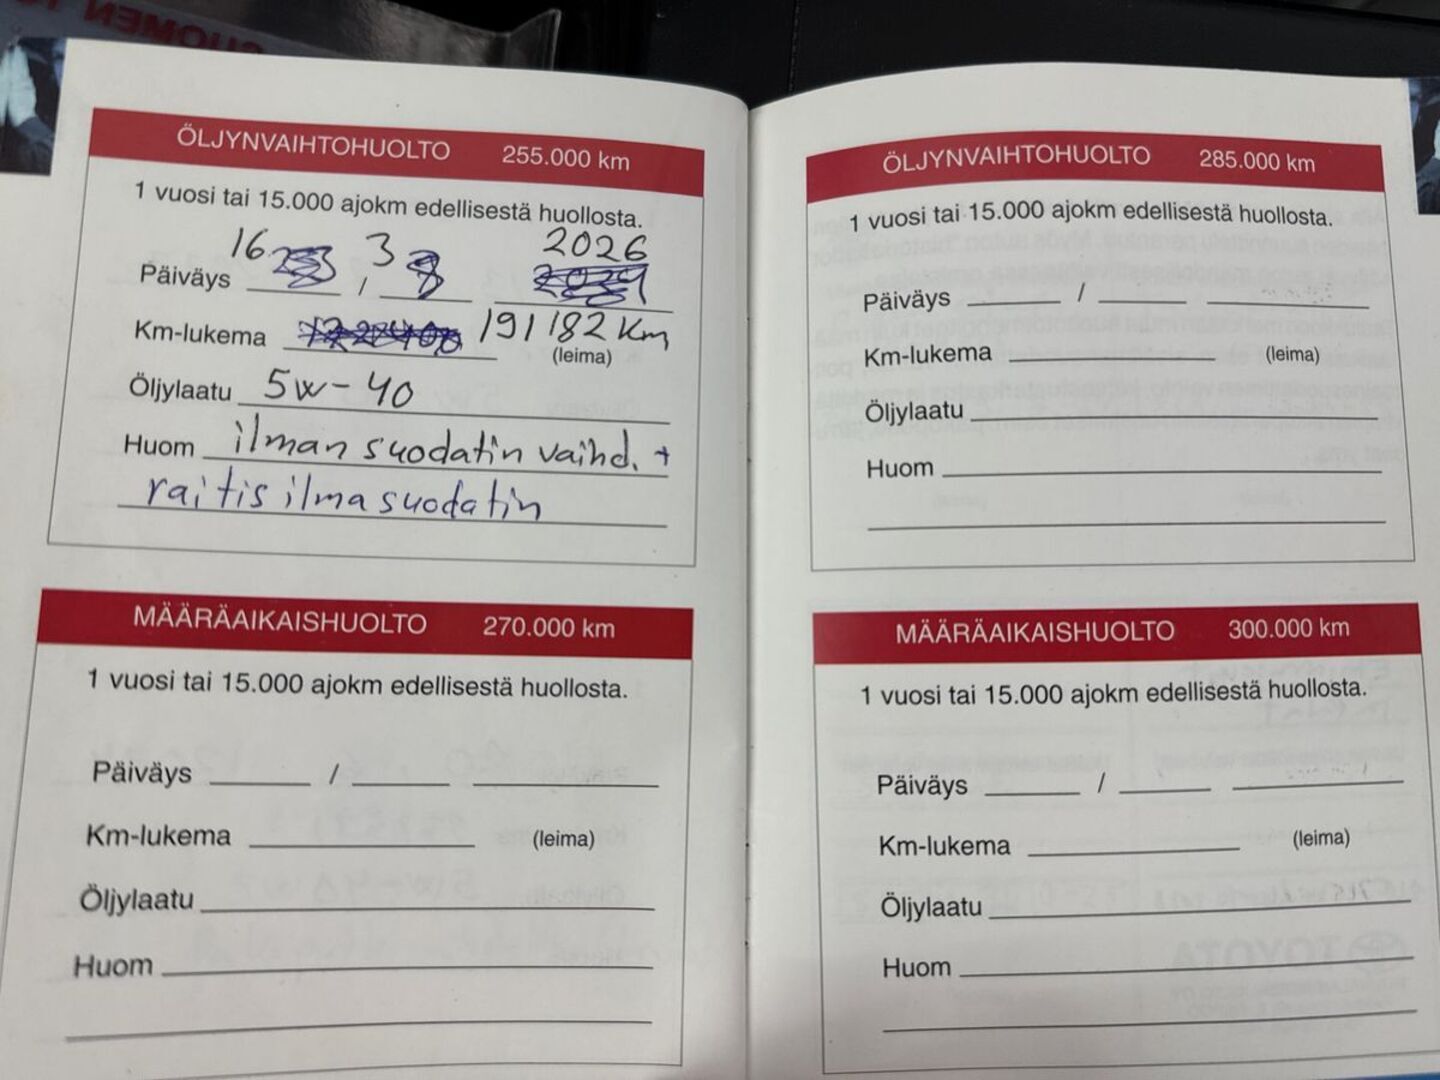 ÖLJYNVAIHTOHUOLTO 255.000 km
1 vuosi tai 15.000 ajokm edellisestä huollosta.
16 3 2026
Päiväys /
Km-lukema 191182 Km
(leima)
Öljylaatu 5W-40
Huom ilman suodatin vaihd. +
raitis ilmasuodatin
MÄÄRÄAIKAISHUOLTO 270.000 km
1 vuosi tai 15.000 ajokm edellisestä huollosta.
Päiväys /
Km-lukema (leima)
Öljylaatu
Huom
ÖLJYNVAIHTOHUOLTO 285.000 km
1 vuosi tai 15.000 ajokm edellisestä huollosta.
Päiväys /
Km-lukema (leima)
Öljylaatu
Huom
MÄÄRÄAIKAISHUOLTO 300.000 km
1 vuosi tai 15.000 ajokm edellisestä huollosta.
Päiväys /
Km-lukema (leima)
Öljylaatu
Huom